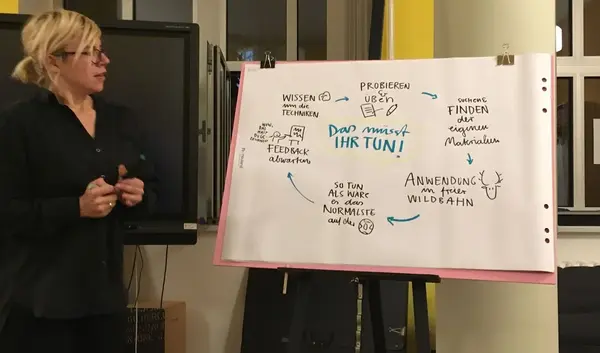 Das müsst
IHR TUN!
WISSEN
um die
TECHNIKEN
PROBIEREN
&
ÜBEN
FINDEN
der
eigenen
Materialien
ANWENDUNG
in freier
WILDBAHN
SO TUN
ALS WÄRE
es das
NORMALSTE
auf der
FEEDBACK
abwarten